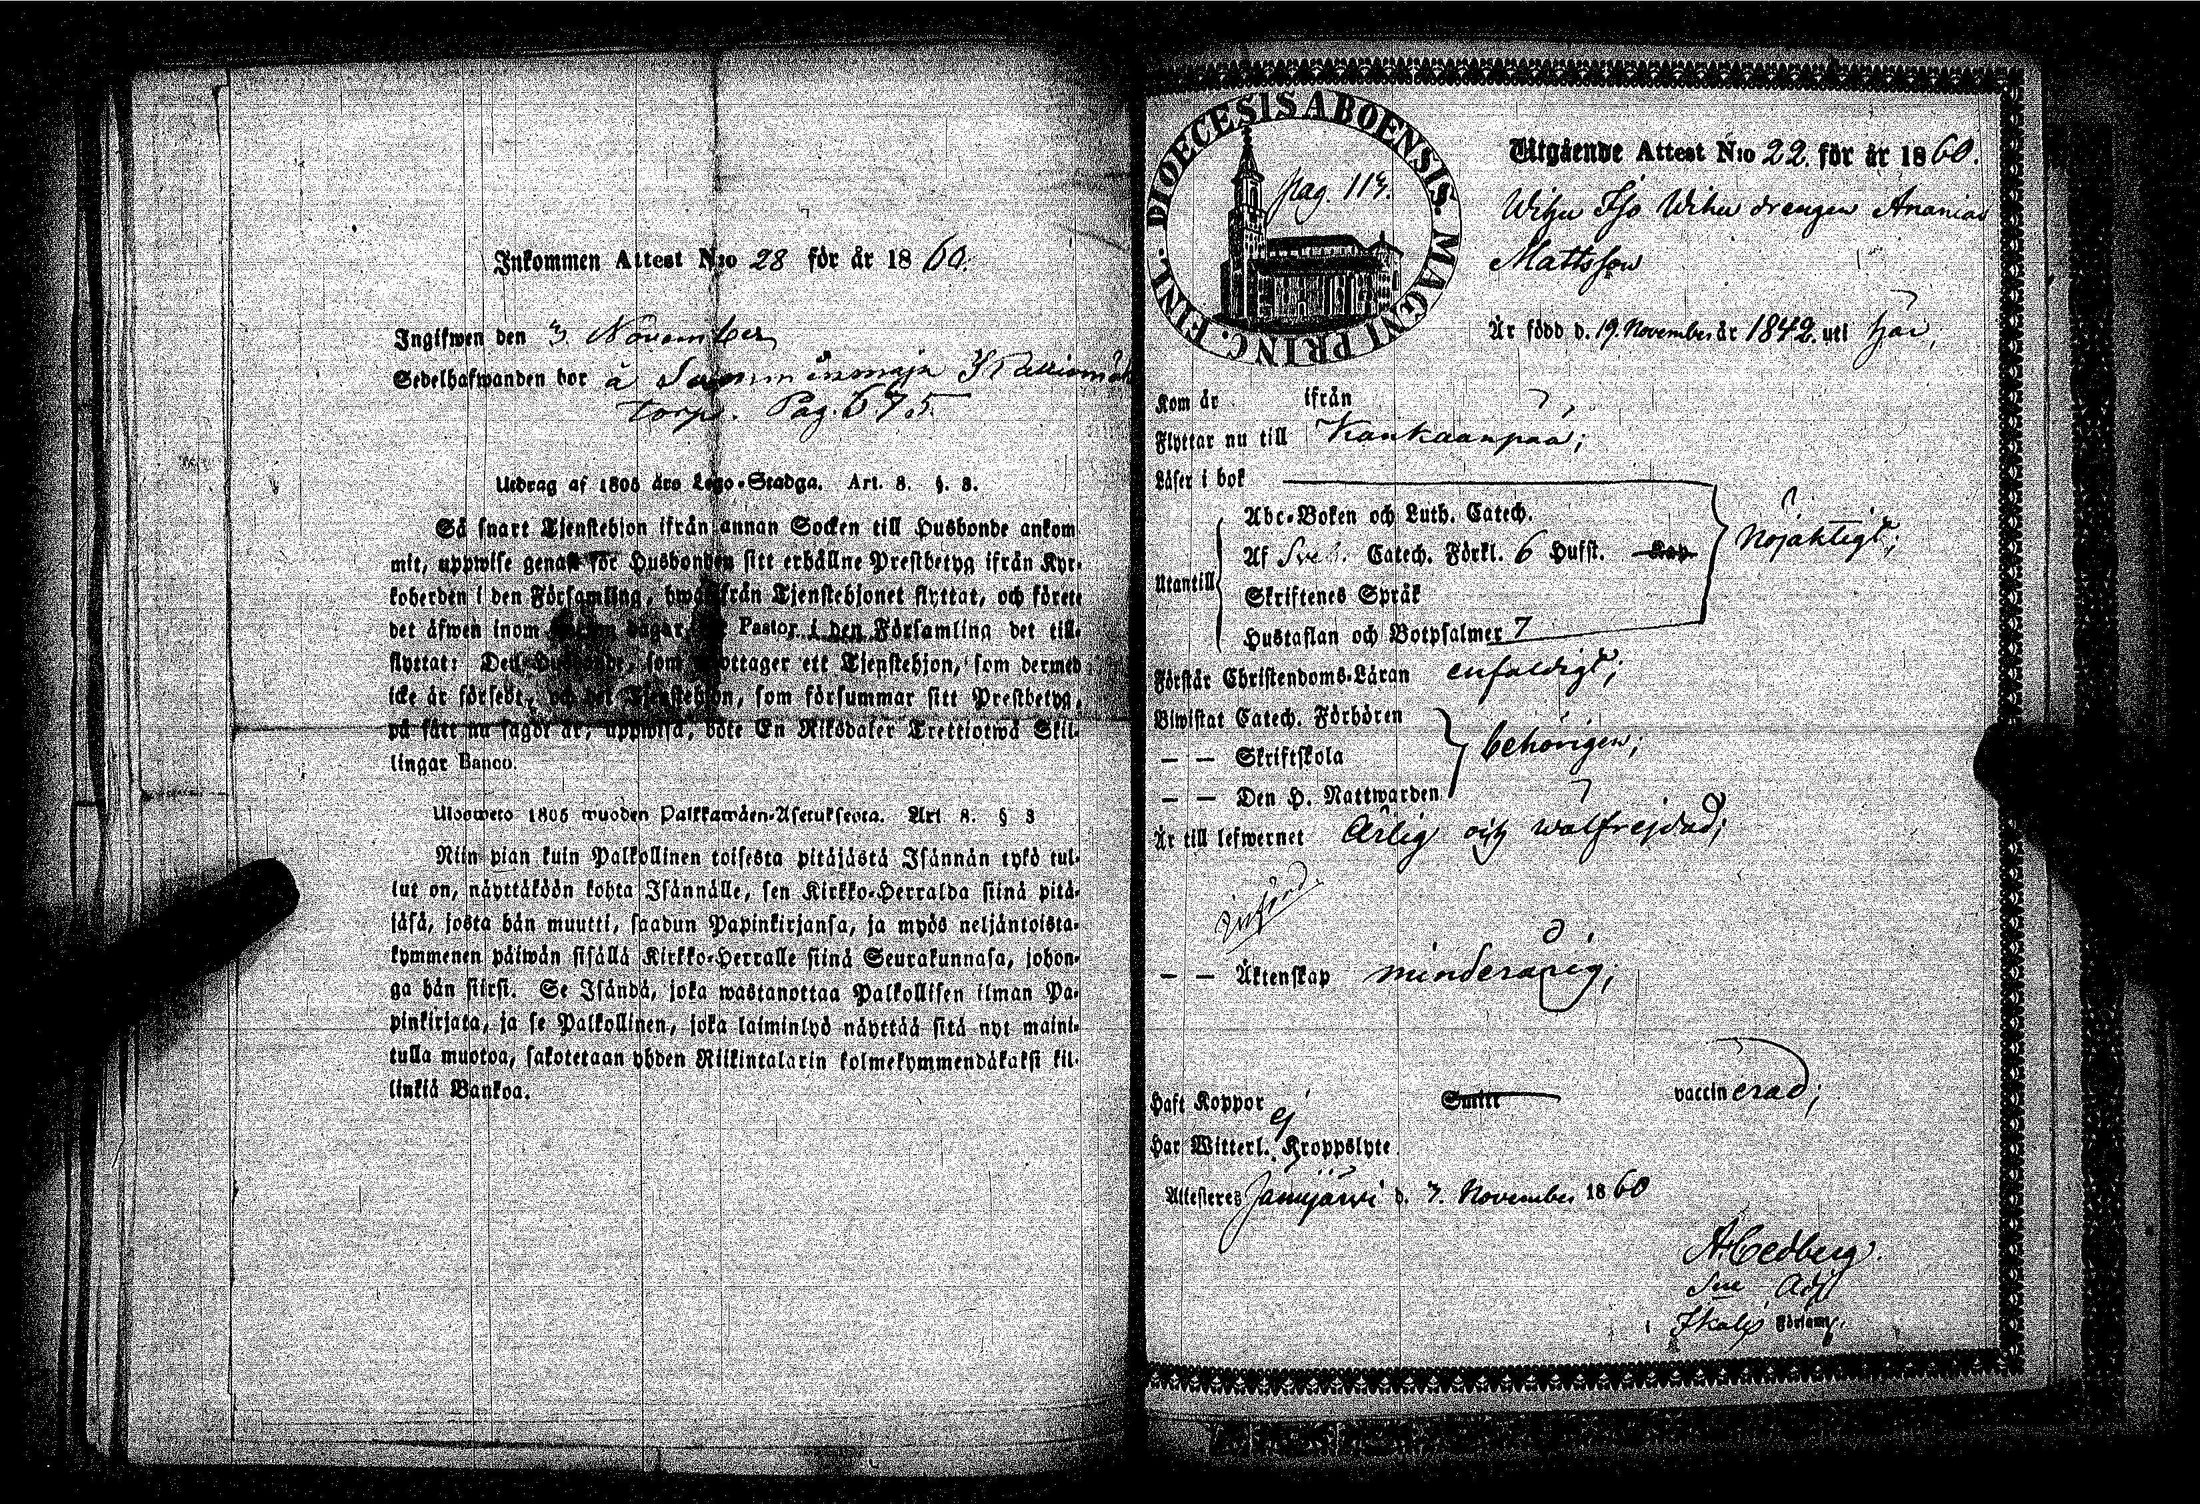 Inkommen Attest N:o 28 för år 1860.
Ingifwen den November
Sedelhafwanden bor å
torp. Pag. 675.
Utdrag af 1805 års Lego-Stadga. Art. 8. §. 8.
Så snart Tjenstehjon ifrån annan Socken till Husbonde ankom-
mit, uppwise genast för Husbonden sitt erhållne Prestbetyg ifrån Kyr-
koherden i den Församling, hwarifrån Tjenstehjonet flyttat, och förete
det äfwen inom dagar Pastor i den Församling det till-
flyttat: Den Husbonde, som mottager ett Tjenstehjon, som dermed
icke är försedt, och det Tjenstehjon, som försummar sitt Prestbetyg,
på sätt nu sagdt är, uppwisa, böte En Riksdaler Trettiotwå Skil-
lingar Banco.
Ulosweto 1805 wuoden Palkkawäen-Asetuksesta. Art 8. § 8
Niin pian kuin Palkollinen toisesta pitäjästä Isännän tykö tul-
lut on, näyttäköön kohta Isännälle, sen Kirkko-Herralda siinä pitä-
jäsä, josta hän muutti, saadun Papinkirjansa, ja myös neljäntoista-
kymmenen päiwän sisällä Kirkko-Herralle siinä Seurakunnasa, johon-
ga hän siirsi. Se Isändä, joka wastanottaa Palkollisen ilman Pa-
pinkirjata, ja se Palkollinen, joka laiminlyö näyttää sitä nyt maini-
tulla muotoa, sakotetaan yhden Riikintalarin kolmekymmendäkaksi kil-
linkiä Bankoa.
DIOECESIS ABOENSIS. MAGNI PRINC. FINL.
pag. 113.
Utgående Attest N:o 22. för år 1860.
drengen Ananias
Mattsson
Är född d. 19. November år 1842. uti här,
Kom år ifrån
Flyttar nu till Kankaanpää;
Läser i bok
Abc-Boken och Luth. Catech.
Af Sveb. Catech. Förkl. 6 Hufst. Kap. nöjaktigt;
Utantill
Skriftenes Språk
Hustaflan och Botpsalmer 7
Förstår Christendoms-Läran enfaldigt;
Biwistat Catech. Förhören
— — Skriftskola behörigen;
— — Den H. Nattwarden
Är till lefwernet Ärlig och wälfrejdad;
införd
— — Äktenskap minderårig;
Haft Koppor Smitt vaccinerad;
Har Witterl. ej Kroppslyte
Attesteras Jämijärwi d. 7. November 1860
AHedberg.
Ikalis Församl.